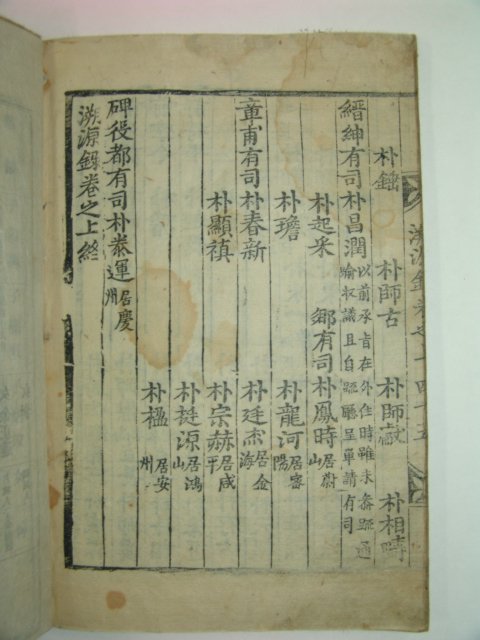 朴師古　朴師　朴相時
縉紳有司朴昌潤以前承旨在外任時雖未參疏通喻收議且自疏廳呈單請有司
朴起采　鄉有司朴鳳時居蔚山
朴瞻　朴龍河居密陽
章甫有司朴春新　朴廷杰居金海
朴顯禛　朴宗赫居咸平
朴挺源居鴻山
朴楹居安州
碑役都有司朴泰運居慶州
溯源錄卷之上終
溯源錄卷之上　四十五